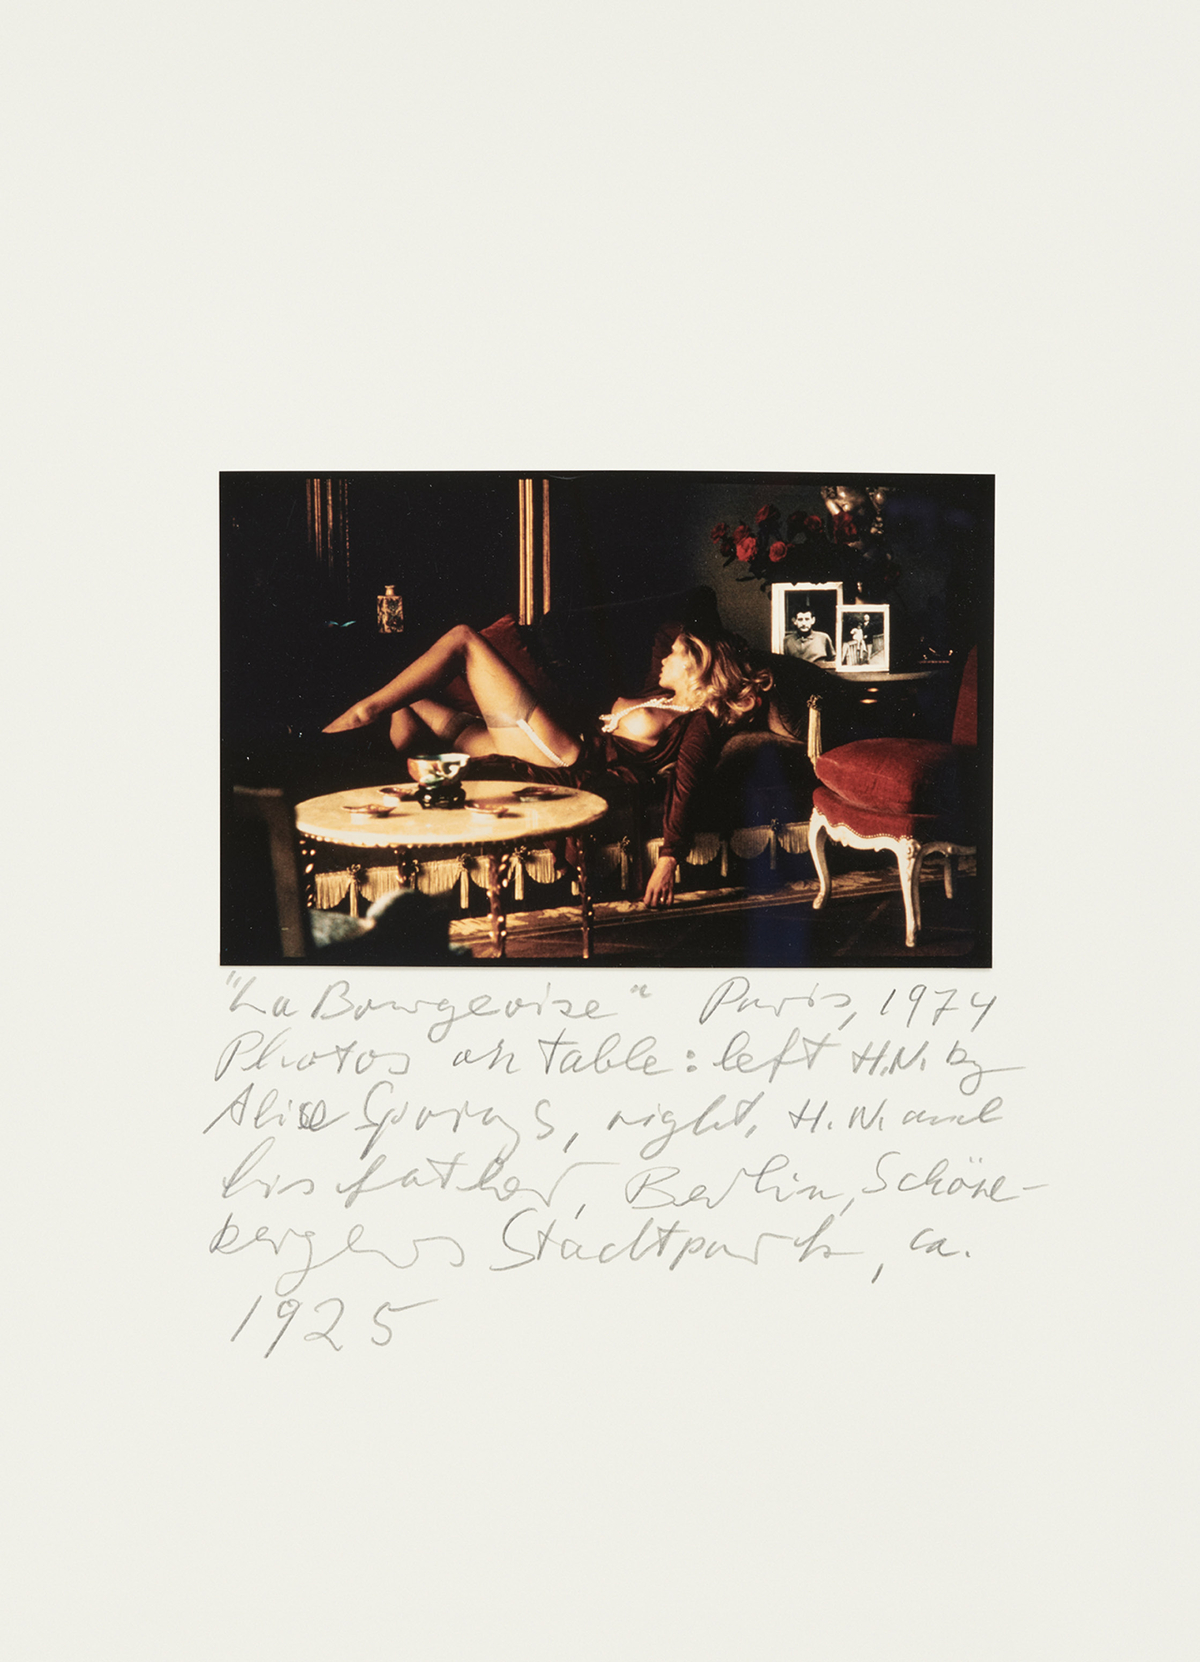 "La Bourgeoise" Paris, 1974
Photos on table: left H.N. by
Alice Springs, right, H.N. and
his father, Berlin, Schöne-
bergers Stadtpark, ca.
1925